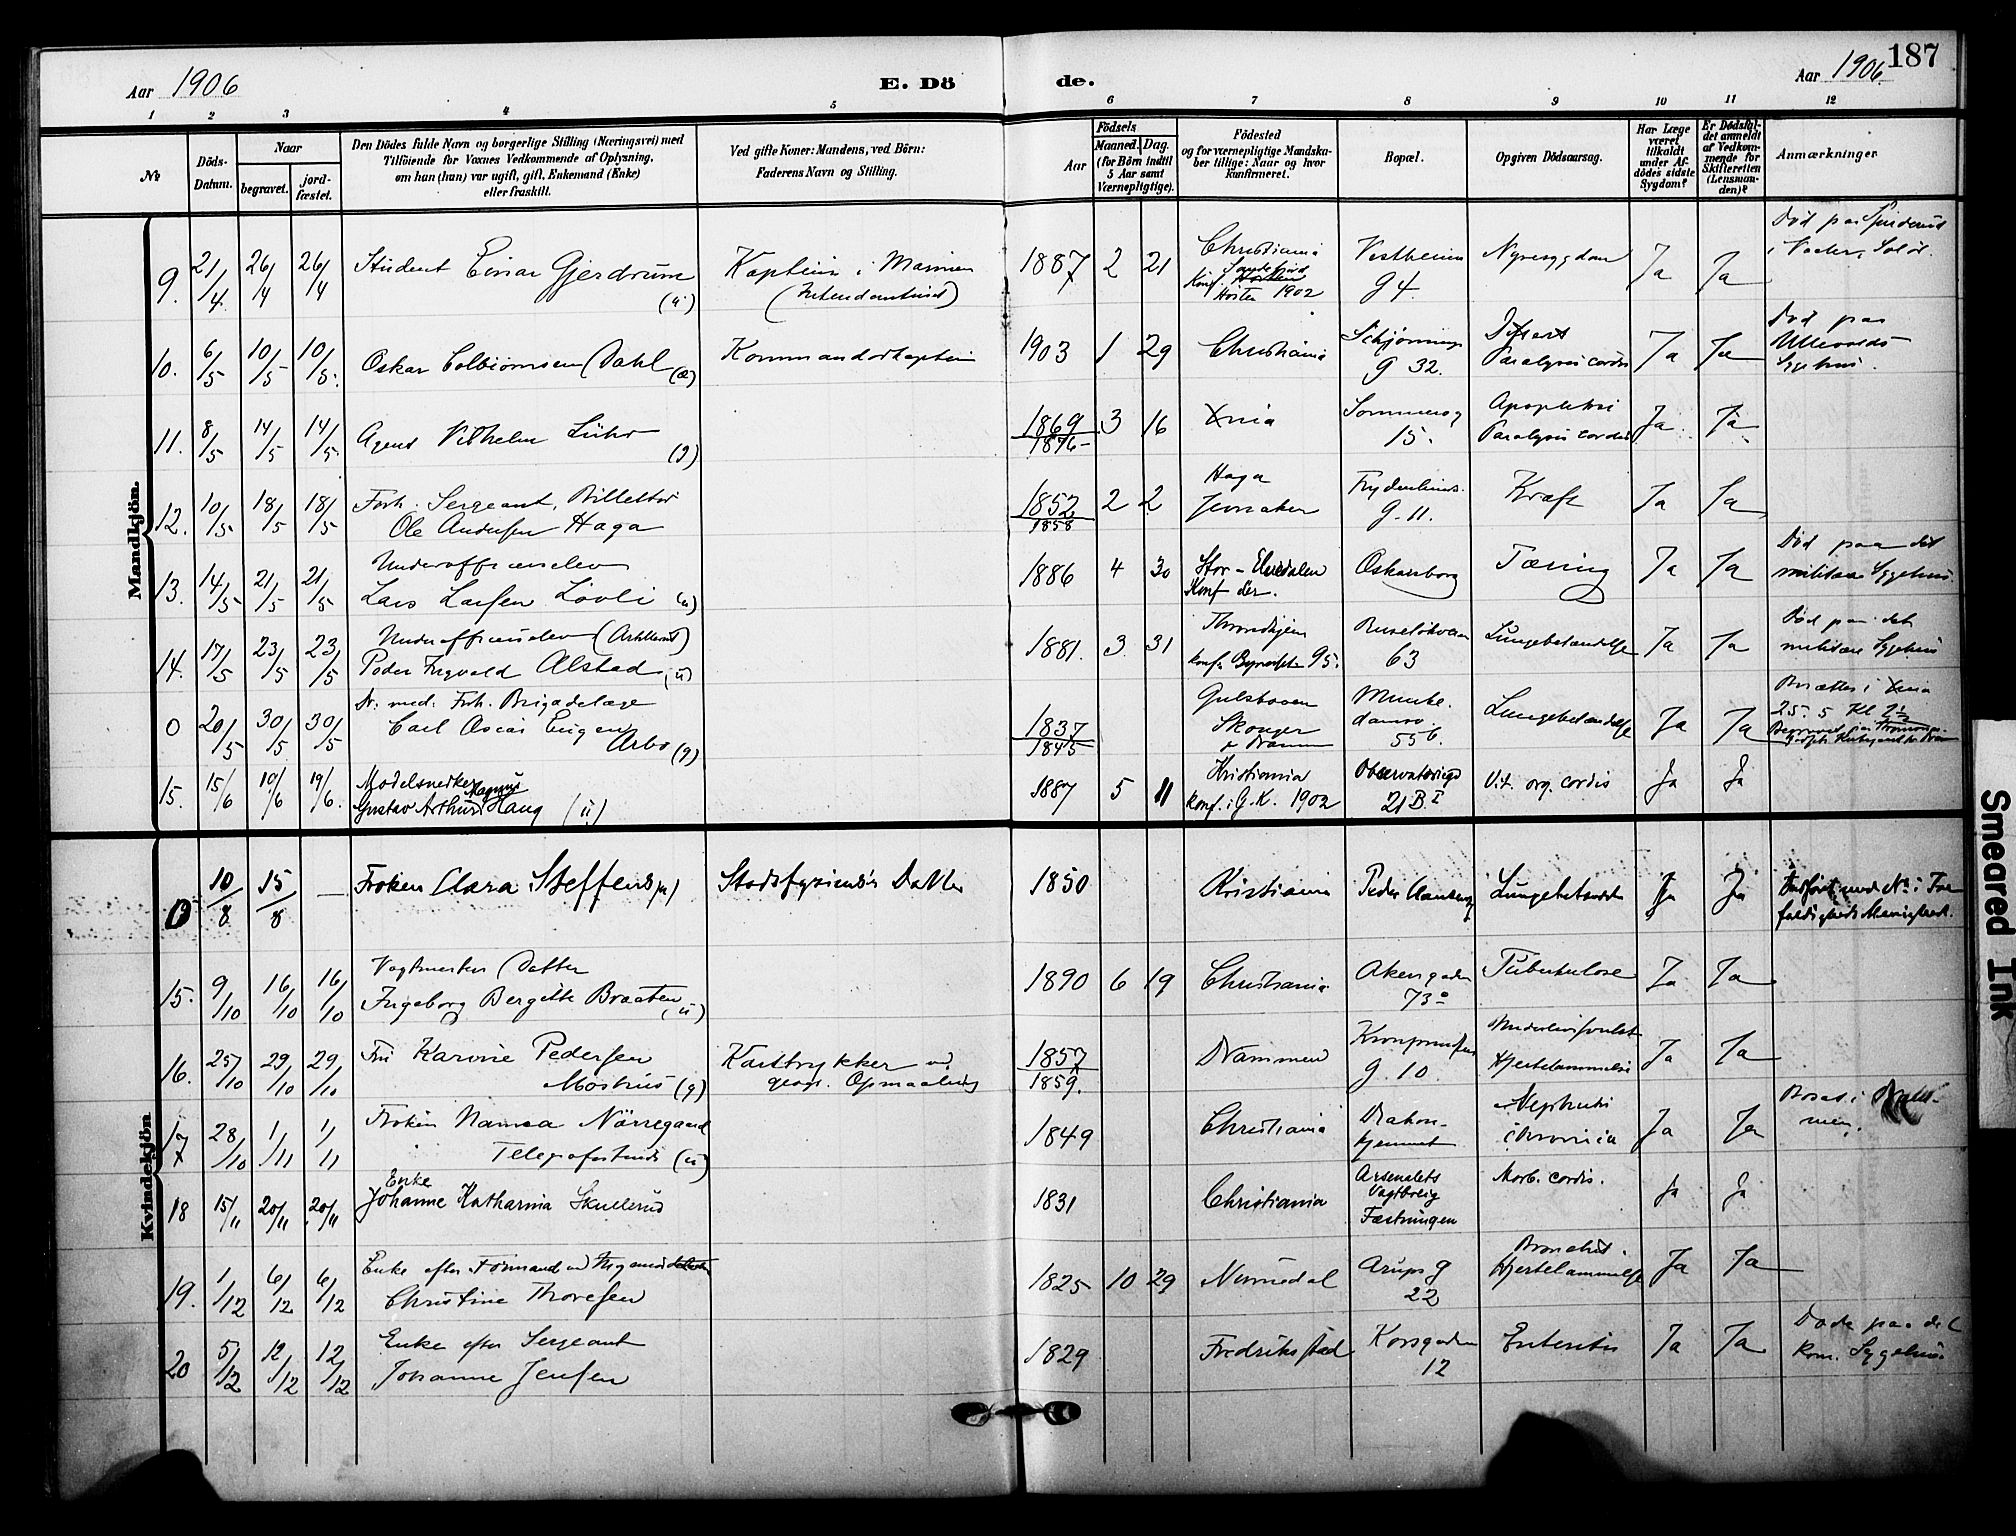 187
Aar 1906 E. Dö de. Aar 1906
1 2 3 4 5 6 7 8 9 10 11 12
No
Döds-Datum.
Naar
begravet.
jord-fæstet.
Den Dödes fulde Navn og borgerlige Stilling (Næringsvei) med
Tilföiende for Voxnes Vedkommende af Oplysning,
om han (hun) var ugift, gift, Enkemand (Enke)
eller fraskilt.
Ved gifte Koner: Mandens, ved Börn:
Faderens Navn og Stilling.
Födsels
Aar
Maaned. Dag.
(for Börn indtil
5 Aar samt
Værnepligtige).
Födested
og for værnepligtige Mandska-
ber tillige: Naar og hvor
konfirmeret.
Bopæl.
Opgiven Dödsaarsag.
Har Læge
været
tilkaldt
under Af-
dödes sidste
Sygdom?
Er Dödsfal-
det anmeldt
af Vedkom-
mende for
Skifteretten
(Lensman-
den)?
Anmærkninger
Mandkjön.
9. 21/4. 26/4 26/4 Student Einar Gjerdrum (u) Kaptein i Marinen (Intendanturet) 1887 2 21 Christiania Konf. Sandefjord Høsten 1902 Vestheim g 4. Nyresygdom Ja Ja Død paa
10. 6/5 10/5 10/5. Oskar Colbiørnsen Dahl Kommandørkaptein 1903 1 29 Christiania Schjønnings g 32. Paralysis cordis Ja Ja Død paa Ullevolds Sygehus.
11. 8/5 14/5 14/5. Agent Vilhelm Lühr (g) 1869 1876 3 16 Xnia Sommerog 15. Apoplexi Paralysis cordis Ja. Ja
12. 10/5 18/5 18/5 Forh. Sergeant, Billettør Ole Andersen Haga 1852 1858 2 2 Haga Jevnaker Frydenlunds. g. 11. Kræft Ja Ja
13. 14/5 21/5 21/5 Underofficerselev Lars Larsen Løvli (u) 1886 4 30 Stor-Elvedalen Konf der. Oskarsborg Tæring Ja Ja Død paa det militære Sygehus.
14. 17/5 23/5 23/5 Underofficerselev (Artilleriet) Peder Ingvald Alstad (u) 1881. 3 31 Throndhjem Konf. 95. Ruseløkveien 63 Lungebetændelse Ja Ja Død paa det militære Sygehus
0 20/5 30/5 30/5 Dr. med. Forh. Brigadelæge Carl Oscar Eugen Arbo (g) 1837 1845 Gulskoven Skoger v Drammen Munke-damsv. 55b. Lungebetændelse Ja Ja Bisættes i Xnia 25. 5 Kl. 2½
15. 15/6 19/6 19/6. Modelsnedker Gustav Arthur Magnus Haug (u) 1887 5 11 Kristiania konf. i G.K. 1902 Observatoriegd 21 B. I Vit. org. cordis Ja Ja
Kvindekjön
0 10/8 15/8 — Frøken Clara Steffens Stadsfysicus's Datter 1850 Kristiania Lungebetændelse Ja Ja Indført med No i Tre-foldigheds Menighed.
15. 9/10 16/10 16/10 Vagtmesters Datter Ingeborg Bergitte Braaten (u) 1890 6 19 Christiania Akersgaden 73 Tuberkulose Ja Ja
16. 25/10 29/10 29/10 Fru Karine Pedersen Moshus (g) Karttrykker ved geogr. Opmaaling 1857 1859. Drammen Kronprinsens g. 10. Hjertelammelse Ja Ja
17 28/10 1/11 1/11 Frøken Nanna Nørregaard Telegrafistinde (u) 1849 Christiania Diakon-hjemmet Nephritis chronica Ja Ja Bosat i
18 15/11 20/11 20/11 Enke Johanne Katharina Skullerud 1831 Christiania Arsenalets Vagtbolig Fæstningen Morb. cordis. Ja Ja
19. 1/12 6/12 6/12 Enke efter Formand Christine Thoresen 1825 10 29 Numedal Arups g 22 Bronchit. Hjertelammelse Ja Ja
20 5/12 12/12 12/12 Enke efter Sergeant Johanne Jensen 1829 Fredrikstad Korsgaden 12 Enteritis Ja Ja Døde paa det kom. Sygehus.
Smeared Ink